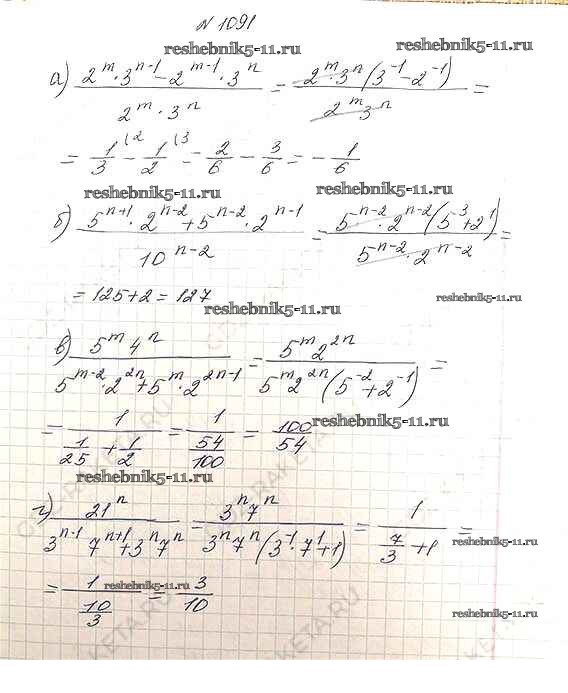 № 1091
reshebnik5-11.ru reshebnik5-11.ru
а) (2^m · 3^(n-1) - 2^(m-1) · 3^n) / (2^m · 3^n) = (2^m · 3^n (3^(-1) - 2^(-1))) / (2^m 3^n) =
= 1/3 (2 - 1/2 (3 = 2/6 - 3/6 = - 1/6
reshebnik5-11.ru reshebnik5-11.ru
б) (5^(n+1) · 2^(n-2) + 5^(n-2) · 2^(n-1)) / 10^(n-2) = (5^(n-2) · 2^(n-2) (5^3 + 2^1)) / (5^(n-2) · 2^(n-2)) =
= 125 + 2 = 127
reshebnik5-11.ru reshebnik5-11.ru
в) (5^m 4^n) / (5^(m-2) · 2^(2n) + 5^m · 2^(2n-1)) = (5^m 2^(2n)) / (5^m 2^(2n) (5^(-2) + 2^(-1))) =
= 1 / (1/25 + 1/2) = 1 / (54/100) = 100/54
reshebnik5-11.ru
reshebnik5-11.ru
г) 21^n / (3^(n-1) 7^(n+1) + 3^n 7^n) = (3^n 7^n) / (3^n 7^n (3^(-1) · 7^1 + 1)) = 1 / (7/3 + 1) =
reshebnik5-11.ru
= 1 / (10/3) = 3/10
reshebnik5-11.ru
reshebnik5-11.ru